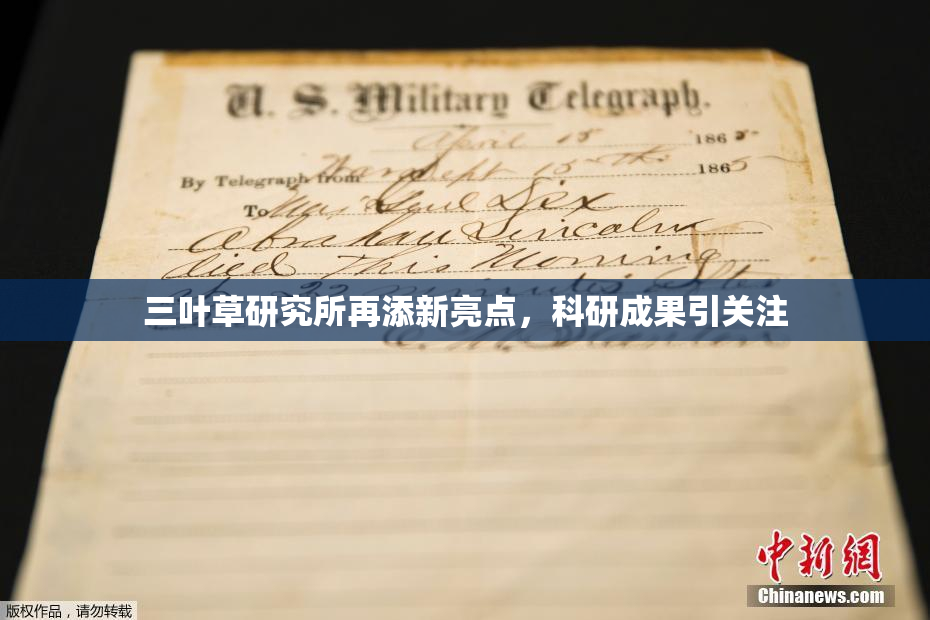 U. S. Military Telegraph.
April 15 1865
By Telegraph from War Dept 15th 1865
To Maj Genl Dix
Abraham Lincoln
died This Morning
at 22 minutes after
三叶草研究所再添新亮点，科研成果引关注
E. M. Stanton
中新網
Chinanews.com
版权作品，请勿转载